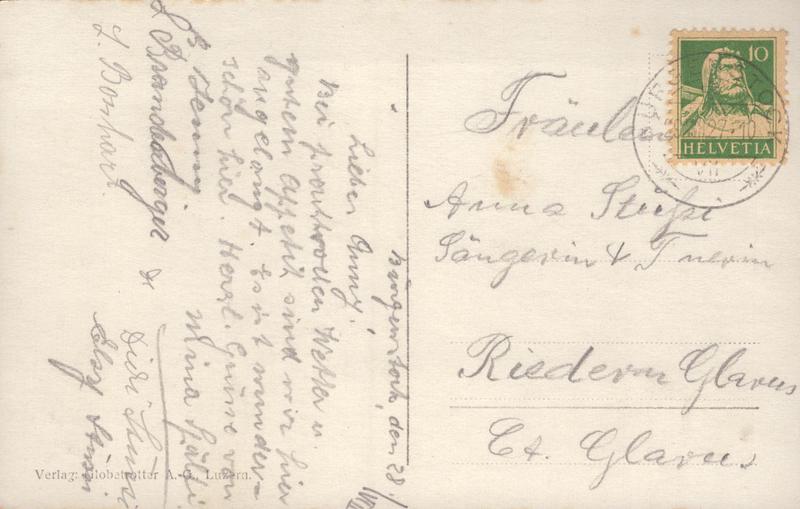 Bürgenstock, den 28.
Liebes Anny!
Bei prachtvollem Wetter u.
gutem Appetit sind wir hier
angelangt. Es ist wunder-
schön hier. Herzl. Grüsse von
Mina Späti
S. Jenny.
S. Brandenberger
L. Bonhart.
Didi
Elsy
Fräulein
Anna Stüssi
Sängerin & Tnerin
Riedern Glarus
Ct. Glarus
10
HELVETIA
VII
Verlag: Globetrotter A.-G., Luzern.